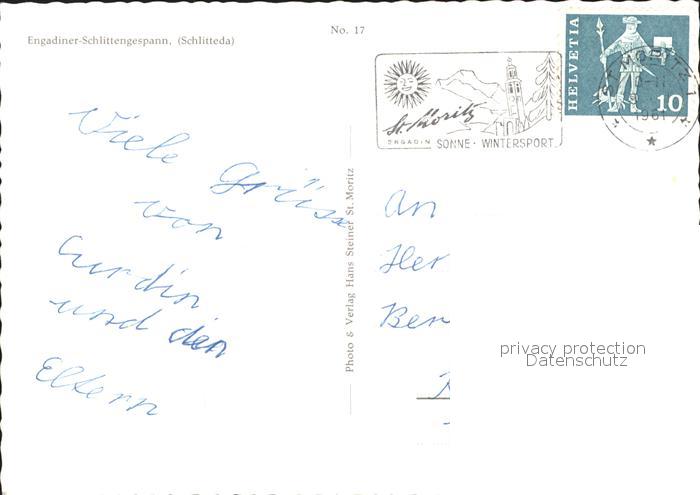 Engadiner-Schlittengespann, (Schlitteda)
No. 17
HELVETIA
10
St. Moritz
ENGADIN SONNE · WINTERSPORT
1961
Viele Grüsse
von
Curdin
und den
Eltern
Photo & Verlag Hans Steiner St. Moritz
An
Her
Ber
privacy protection
Datenschutz